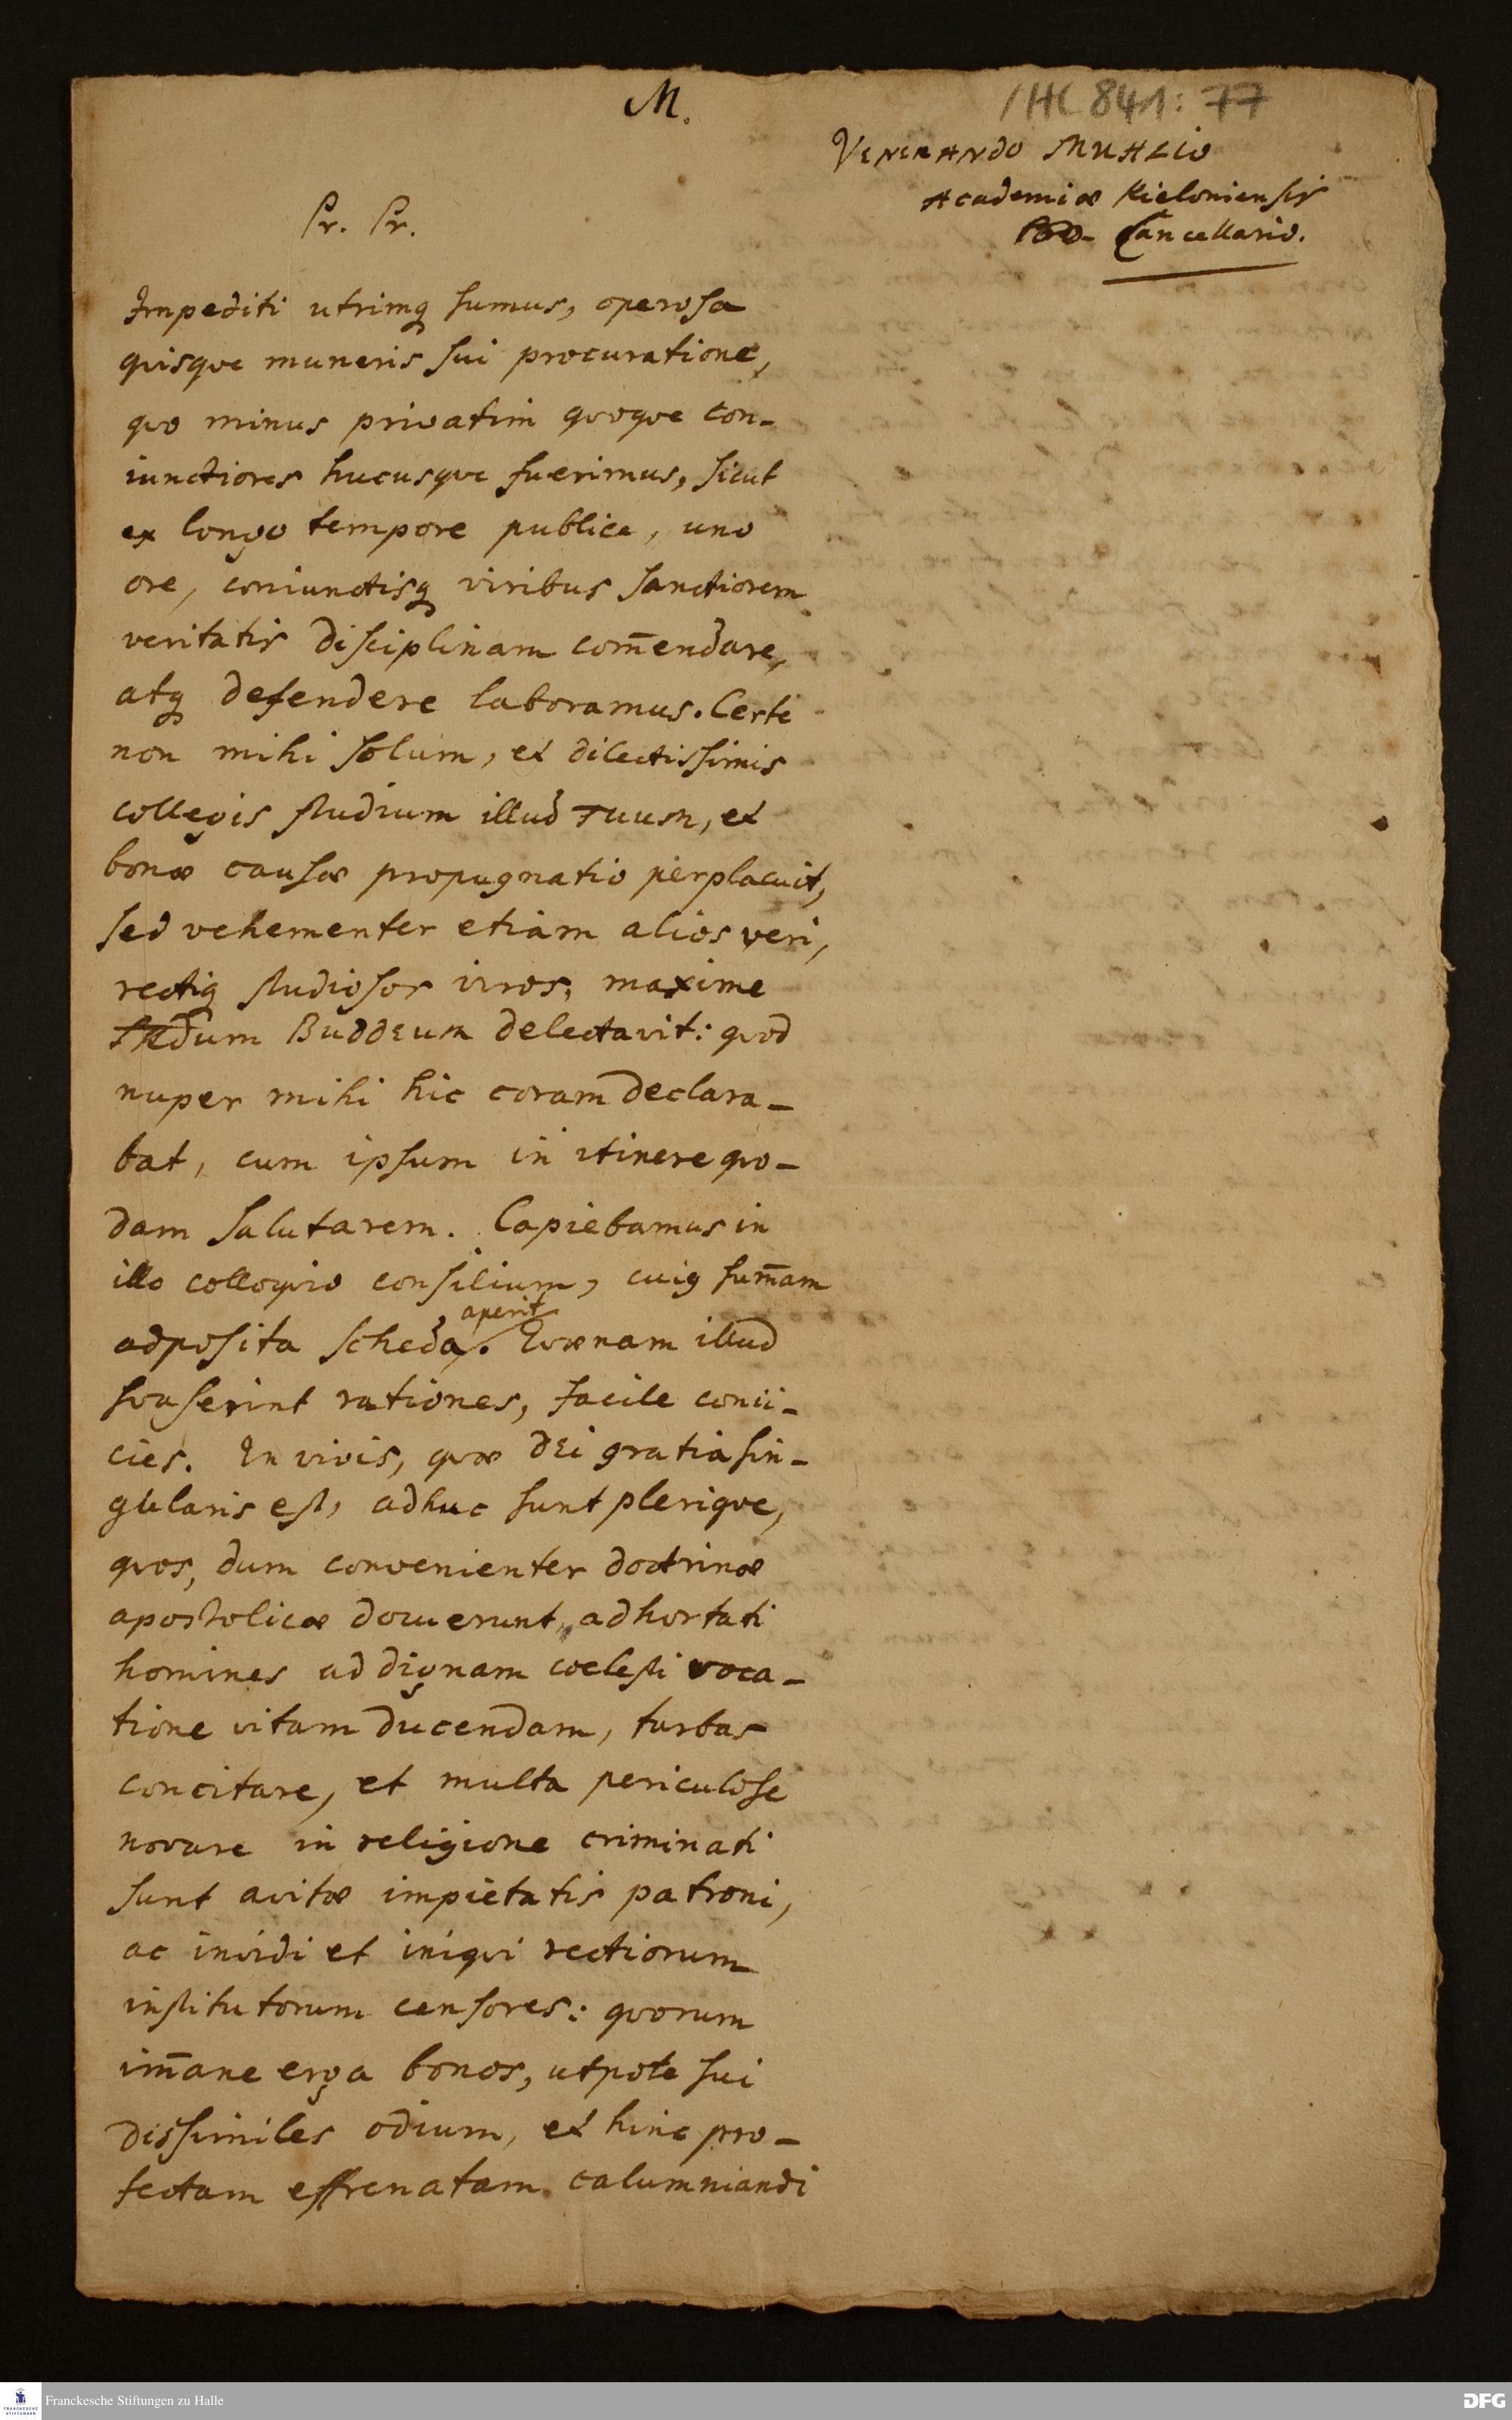 M.
/HC 841: 77
VENERANDO MUHLIO
Academiæ Kieloniensis
Pro-Cancellario.
Pr. Pr.
Impediti utrimq sumus, operosa
quisque muneris sui procuratione,
quo minus privatim quoque con-
iunctiores hucusque fuerimus, sicut
ex longo tempore publice, uno
ore, coniunctisq viribus sanctiorem
veritatis disciplinam com̄endare,
atq defendere laboramus. Certe
non mihi solum, et dilectissimis
collegis studium illud TUUM, et
bonæ causæ propugnatio perplacuit,
sed vehementer etiam alios veri,
rectiq studiosos viros, maxime
BUDDEUM delectavit: quod
nuper mihi hic coram declara-
bat, cum ipsum in itinere quo-
dam salutarem. Capiebamus in
illo colloquio consilium, cuiq sum̄am
adposita scheda aperit. Quænam illud
suaserint rationes, facile conii-
cies. In vivis, quæ DEi gratia sin-
gularis est, adhuc sunt plerique,
quos, dum convenienter doctrinæ
apostolicæ docuerunt, adhortati
homines ad dignam coelesti voca-
tione vitam ducendam, turbas
concitare, et multa periculose
novare in religione criminati
sunt avitæ impietatis patroni,
ac invidi et iniqui rectiorum
institutorum censores: quorum
im̄ane erga bonos, utpote sui
dissimiles odium, et hinc pro-
fectam effrenatam calumniandi
Franckesche Stiftungen zu Halle
DFG